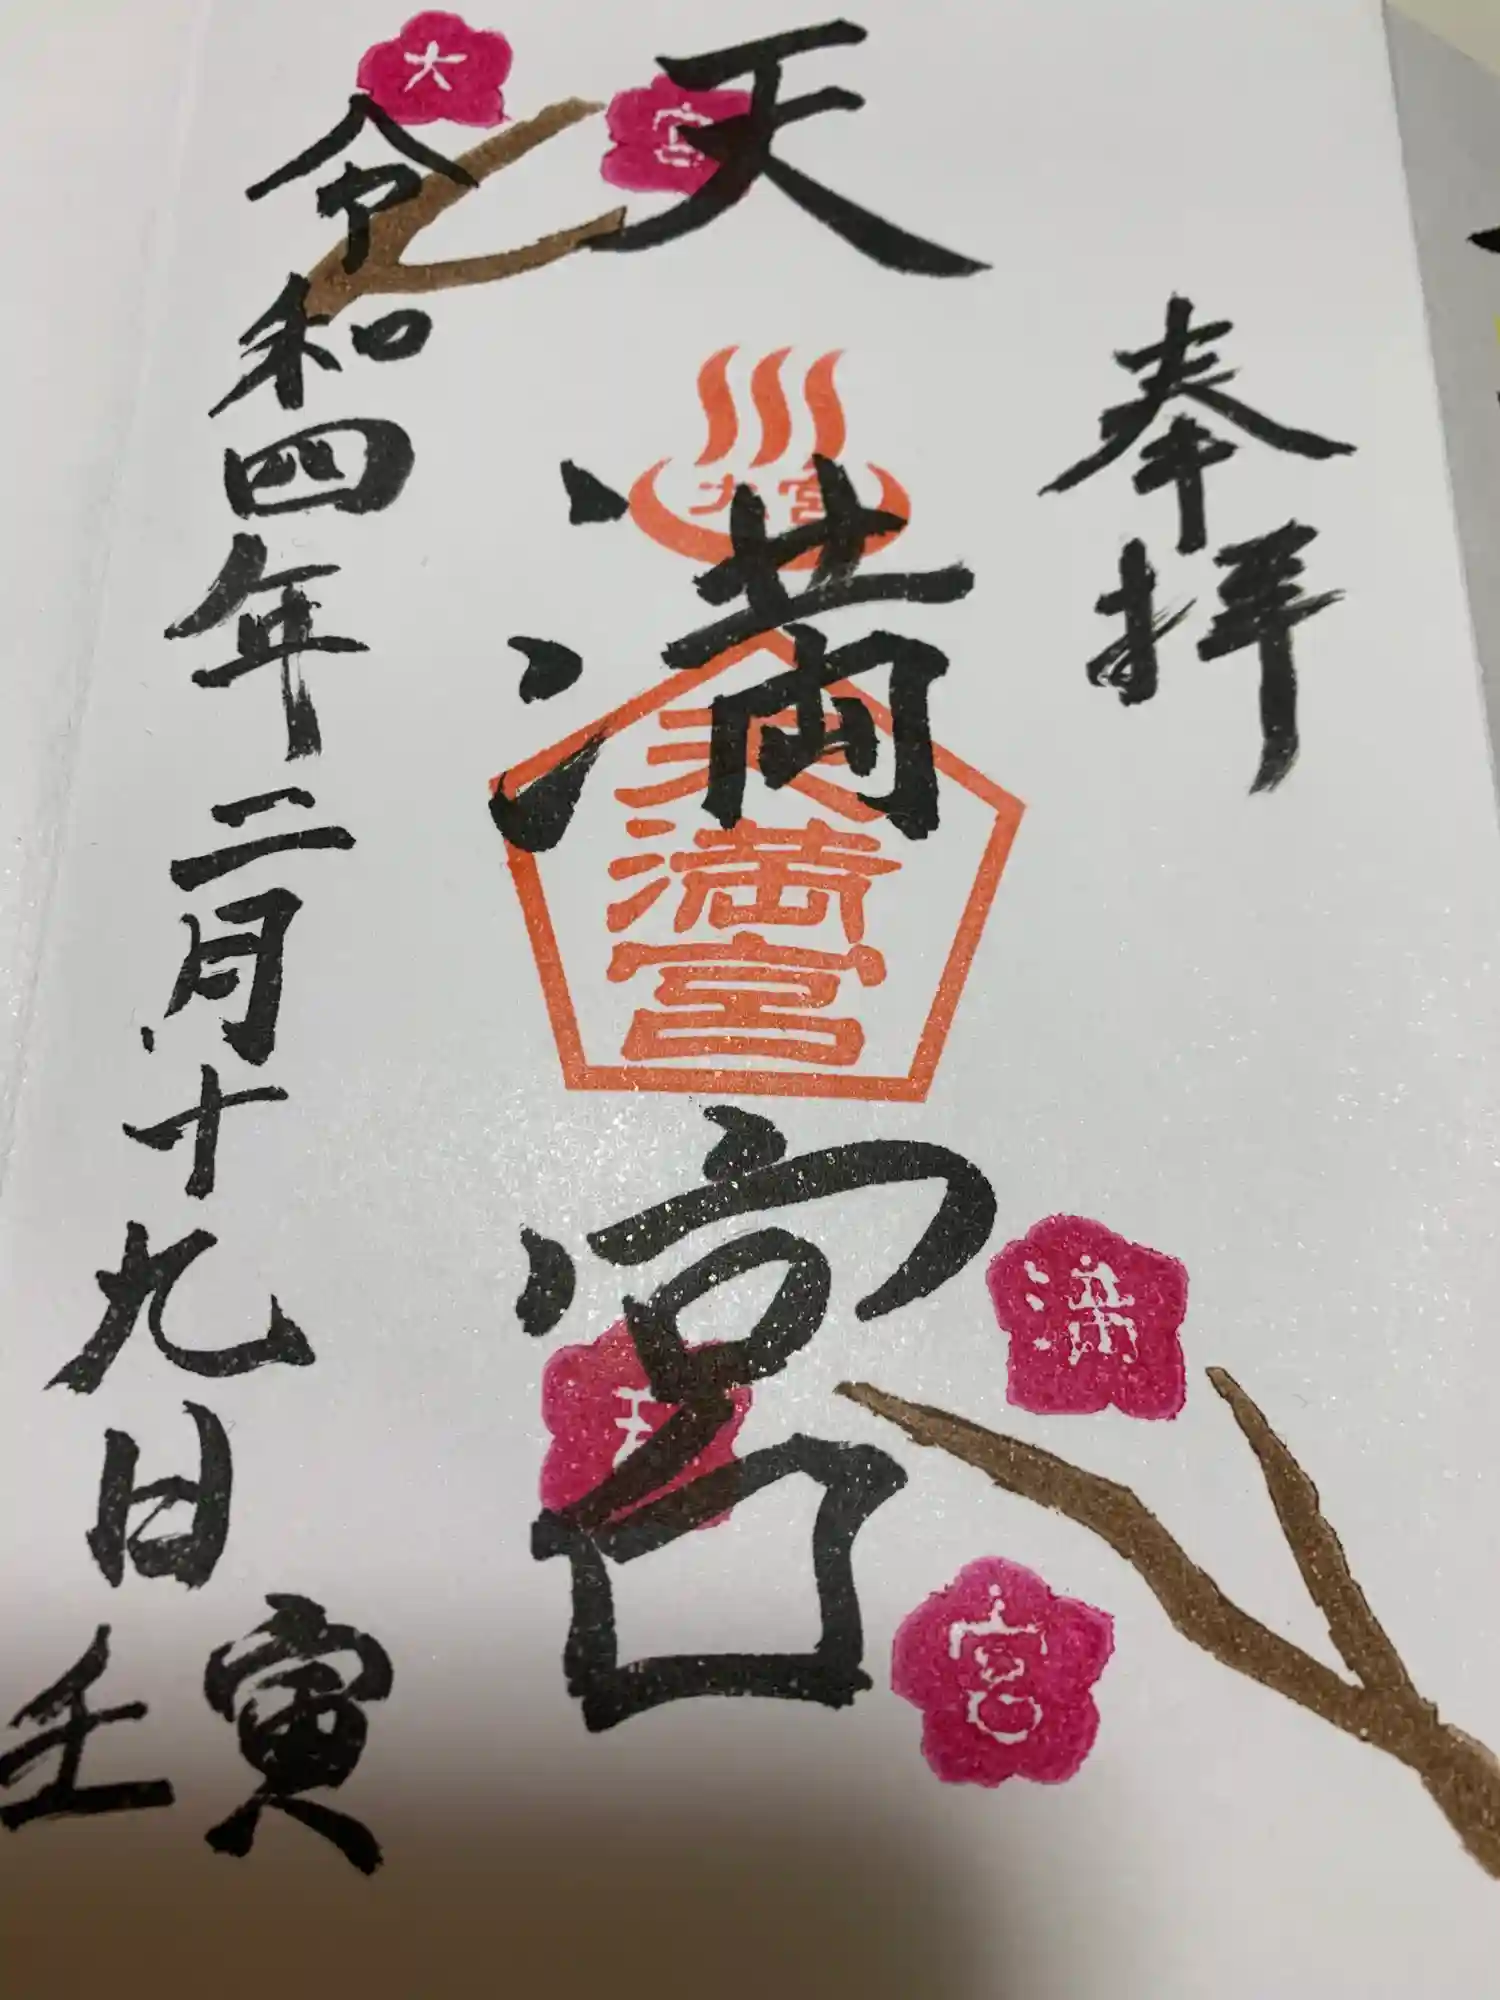 奉拝
天満宮
大宮
天満宮
大
宮
天
満
宮
令和四年二月十九日
壬寅